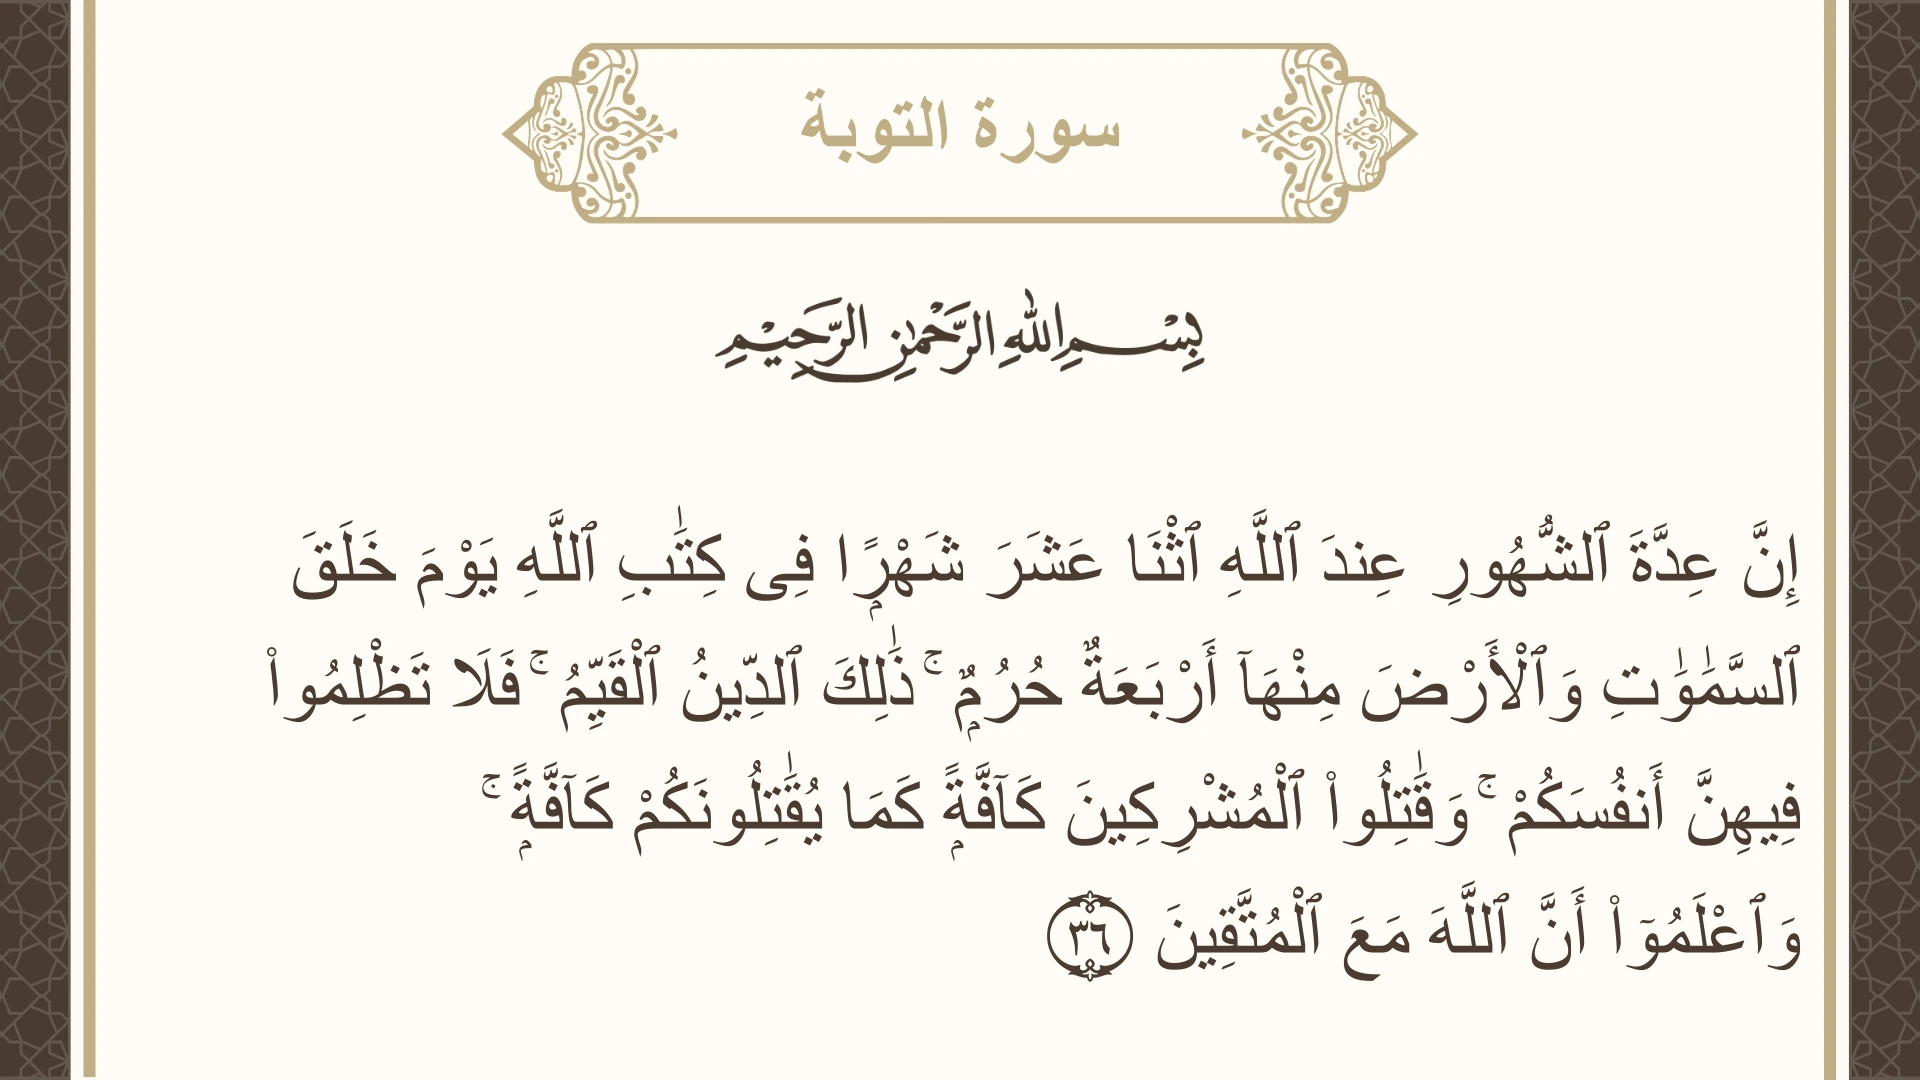 سورة التوبة
بِسْمِ اللهِ الرَّحْمٰنِ الرَّحِيْمِ
إِنَّ عِدَّةَ ٱلشُّهُورِ عِندَ ٱللَّهِ ٱثْنَا عَشَرَ شَهْرًۭا فِى كِتَٰبِ ٱللَّهِ يَوْمَ خَلَقَ
ٱلسَّمَٰوَٰتِ وَٱلْأَرْضَ مِنْهَآ أَرْبَعَةٌ حُرُمٌۭ ۚ ذَٰلِكَ ٱلدِّينُ ٱلْقَيِّمُ ۚ فَلَا تَظْلِمُوا۟
فِيهِنَّ أَنفُسَكُمْ ۚ وَقَٰتِلُوا۟ ٱلْمُشْرِكِينَ كَآفَّةًۭ كَمَا يُقَٰتِلُونَكُمْ كَآفَّةًۭ ۚ
وَٱعْلَمُوٓا۟ أَنَّ ٱللَّهَ مَعَ ٱلْمُتَّقِينَ ٣٦